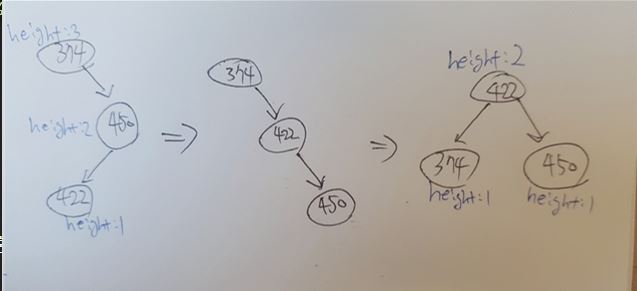 height:3
374
height:2
450
422
height:1
=>
374
422
450
=>
height:2
422
374
450
height:1
height:1